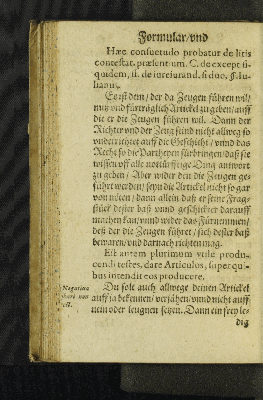 Formular/vnd
Hæc consuetudo probatur de litis
contestat. præsent um. C. de except si-
quidem, ff. de iureiurand. si duo, §. Iu-
lianus.
Es ist dem / der da Zeugen führen wil/
nutz vnd fürträglich Artickel zu geben / auff
die er die Zeugen führen wil. Dann der
Richter vnd der Zeug seind nicht allweg so
vnderrichtet auff die Geschicht / vnnd das
Recht so die Partheyen fürbringen / daß sie
wissen auff alle notürfftige Ding antwort
zu geben / Aber wider den die Zeugen ge-
führt werden / seyn die Artickel nicht so gar
von nöten / dann allein daß er seine Frag-
stück desser baß vnnd geschickter darauff
machen kan / vnnd wider das Fürnemmen /
deß der die Zeugen führet / sich desser baß
bewaren / vnd darnach richten mög.
Est autem plurimum vtile produ-
cendi testes, dare Articulos, super qui-
bus intendit eos producere.
Negatiua
probare non
est.
Du solt auch allwege deinen Artickel
auff ja bekennen / verjähen / vnnd nicht auff
nein oder leugnen setzen. Dann ein frey le-
dig